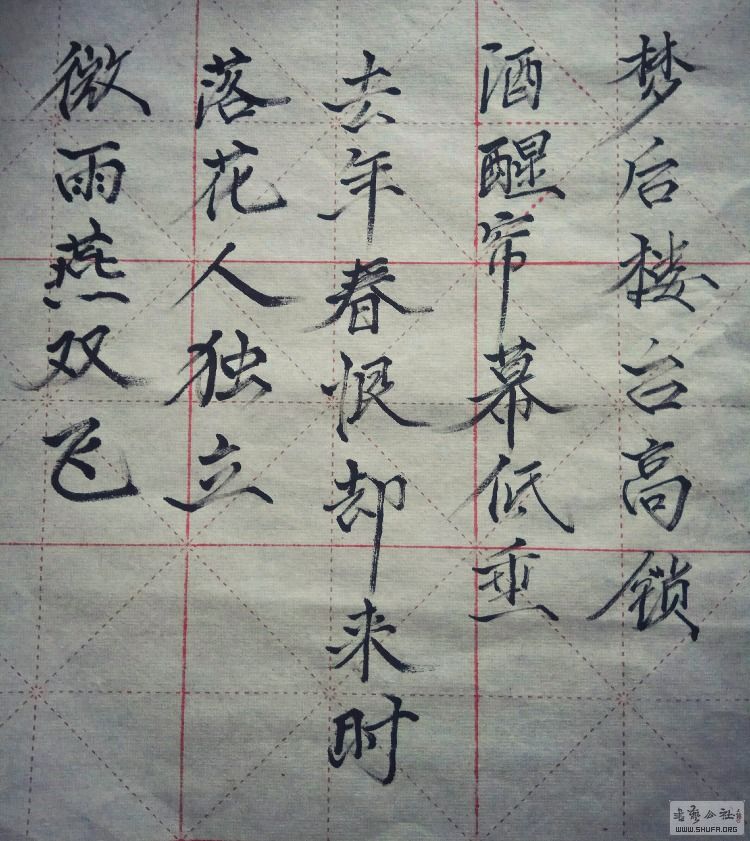 梦后楼台高锁
酒醒帘幕低垂
去年春恨却来时
落花人独立
微雨燕双飞
书艺公社
WWW.SHUFA.ORG